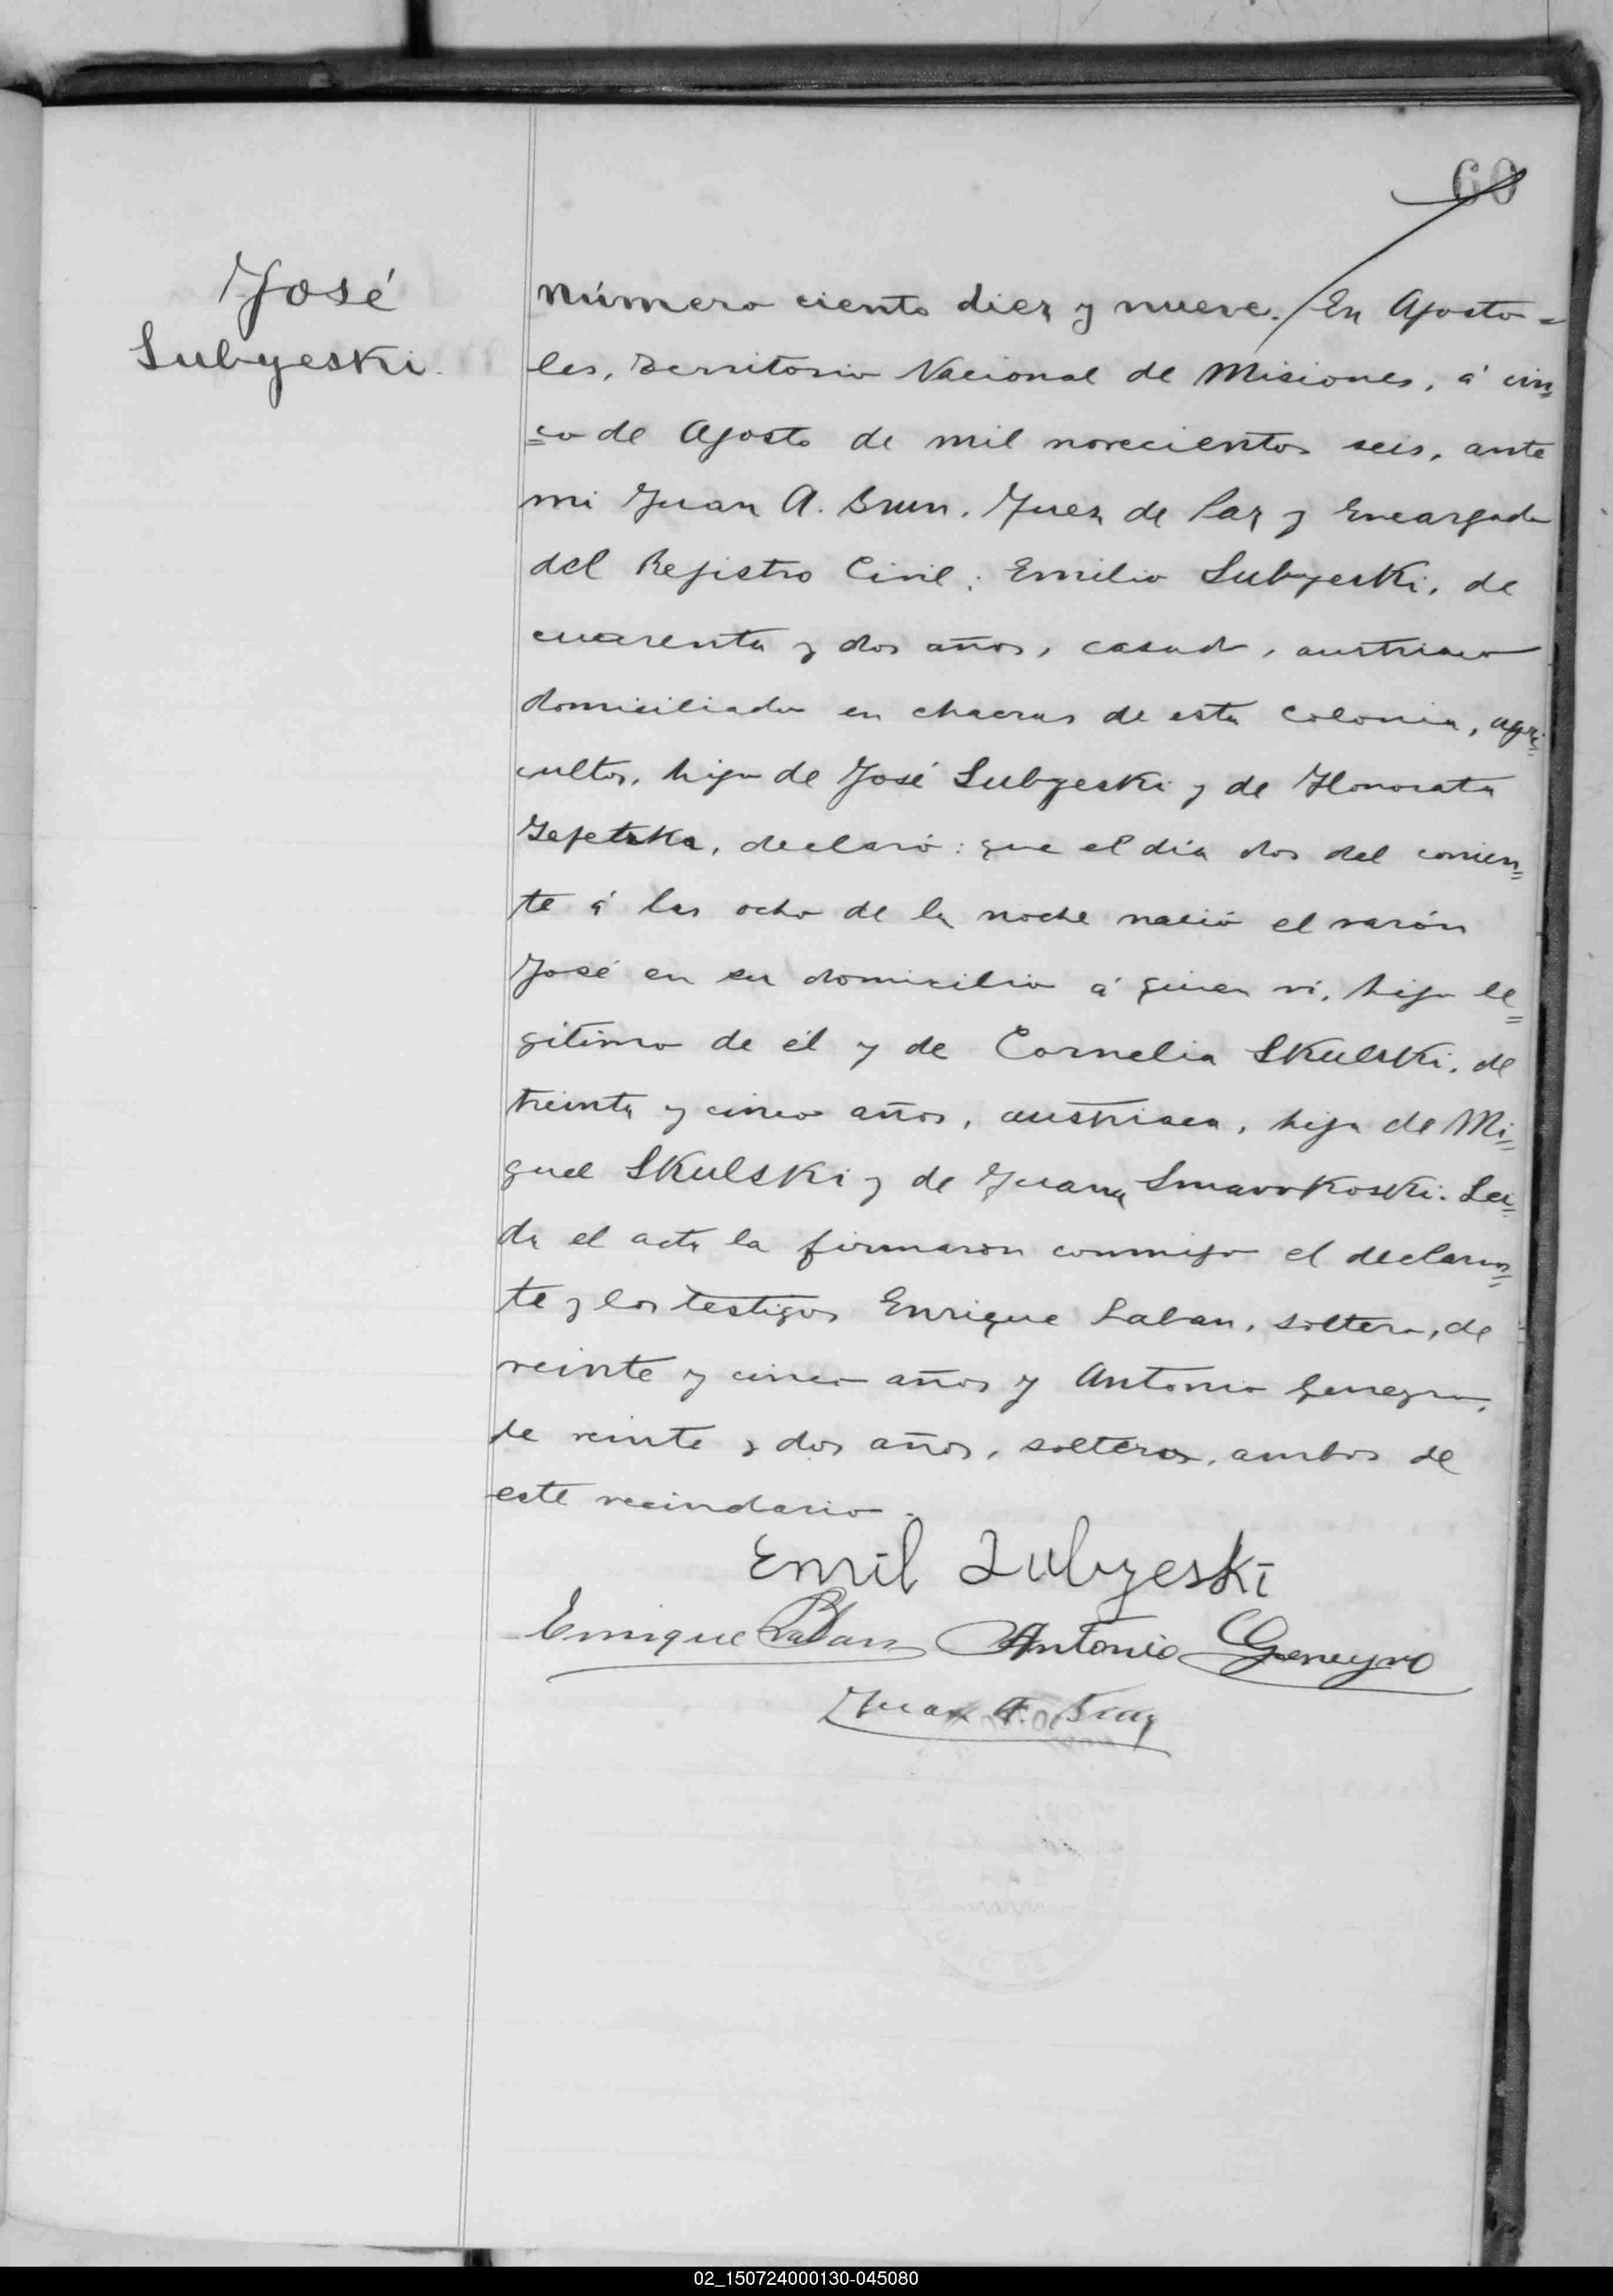 60
José
Lubyeski.
Número ciento diez y nueve. En Aposto=
les, Territorio Nacional de Misiones, á cin=
=co de Agosto de mil novecientos seis, ante
mi Juan A. Brun, Juez de Paz y Encargado
del Registro Civil: Emilio Lubyeski, de
cuarenta y dos años, casado, austriaco
domiciliado en chacras de esta colonia, agri=
cultor, hijo de José Lubyeski y de Honorata
declaró: que el dia dos del corrien=
te á las ocho de la noche nació el varón
José en su domicilio á quien vi, hijo le=
gitimo de él y de Cornelia Skulski, de
treinta y cinco años, austriaca, hija de Mi=
guel Skulski y de Juana Lei=
da el acta la firmaron conmigo el declaran=
te y los testigos Enrique Laban, soltero, de
veinte y cinco años y Antonio Geneyro,
de veinte y dos años, solteros, ambos de
este vecindario.
Emil Lubyeski
Enrique Laban Antonio Geneyro
Juan A. Brun
02_150724000130-045080